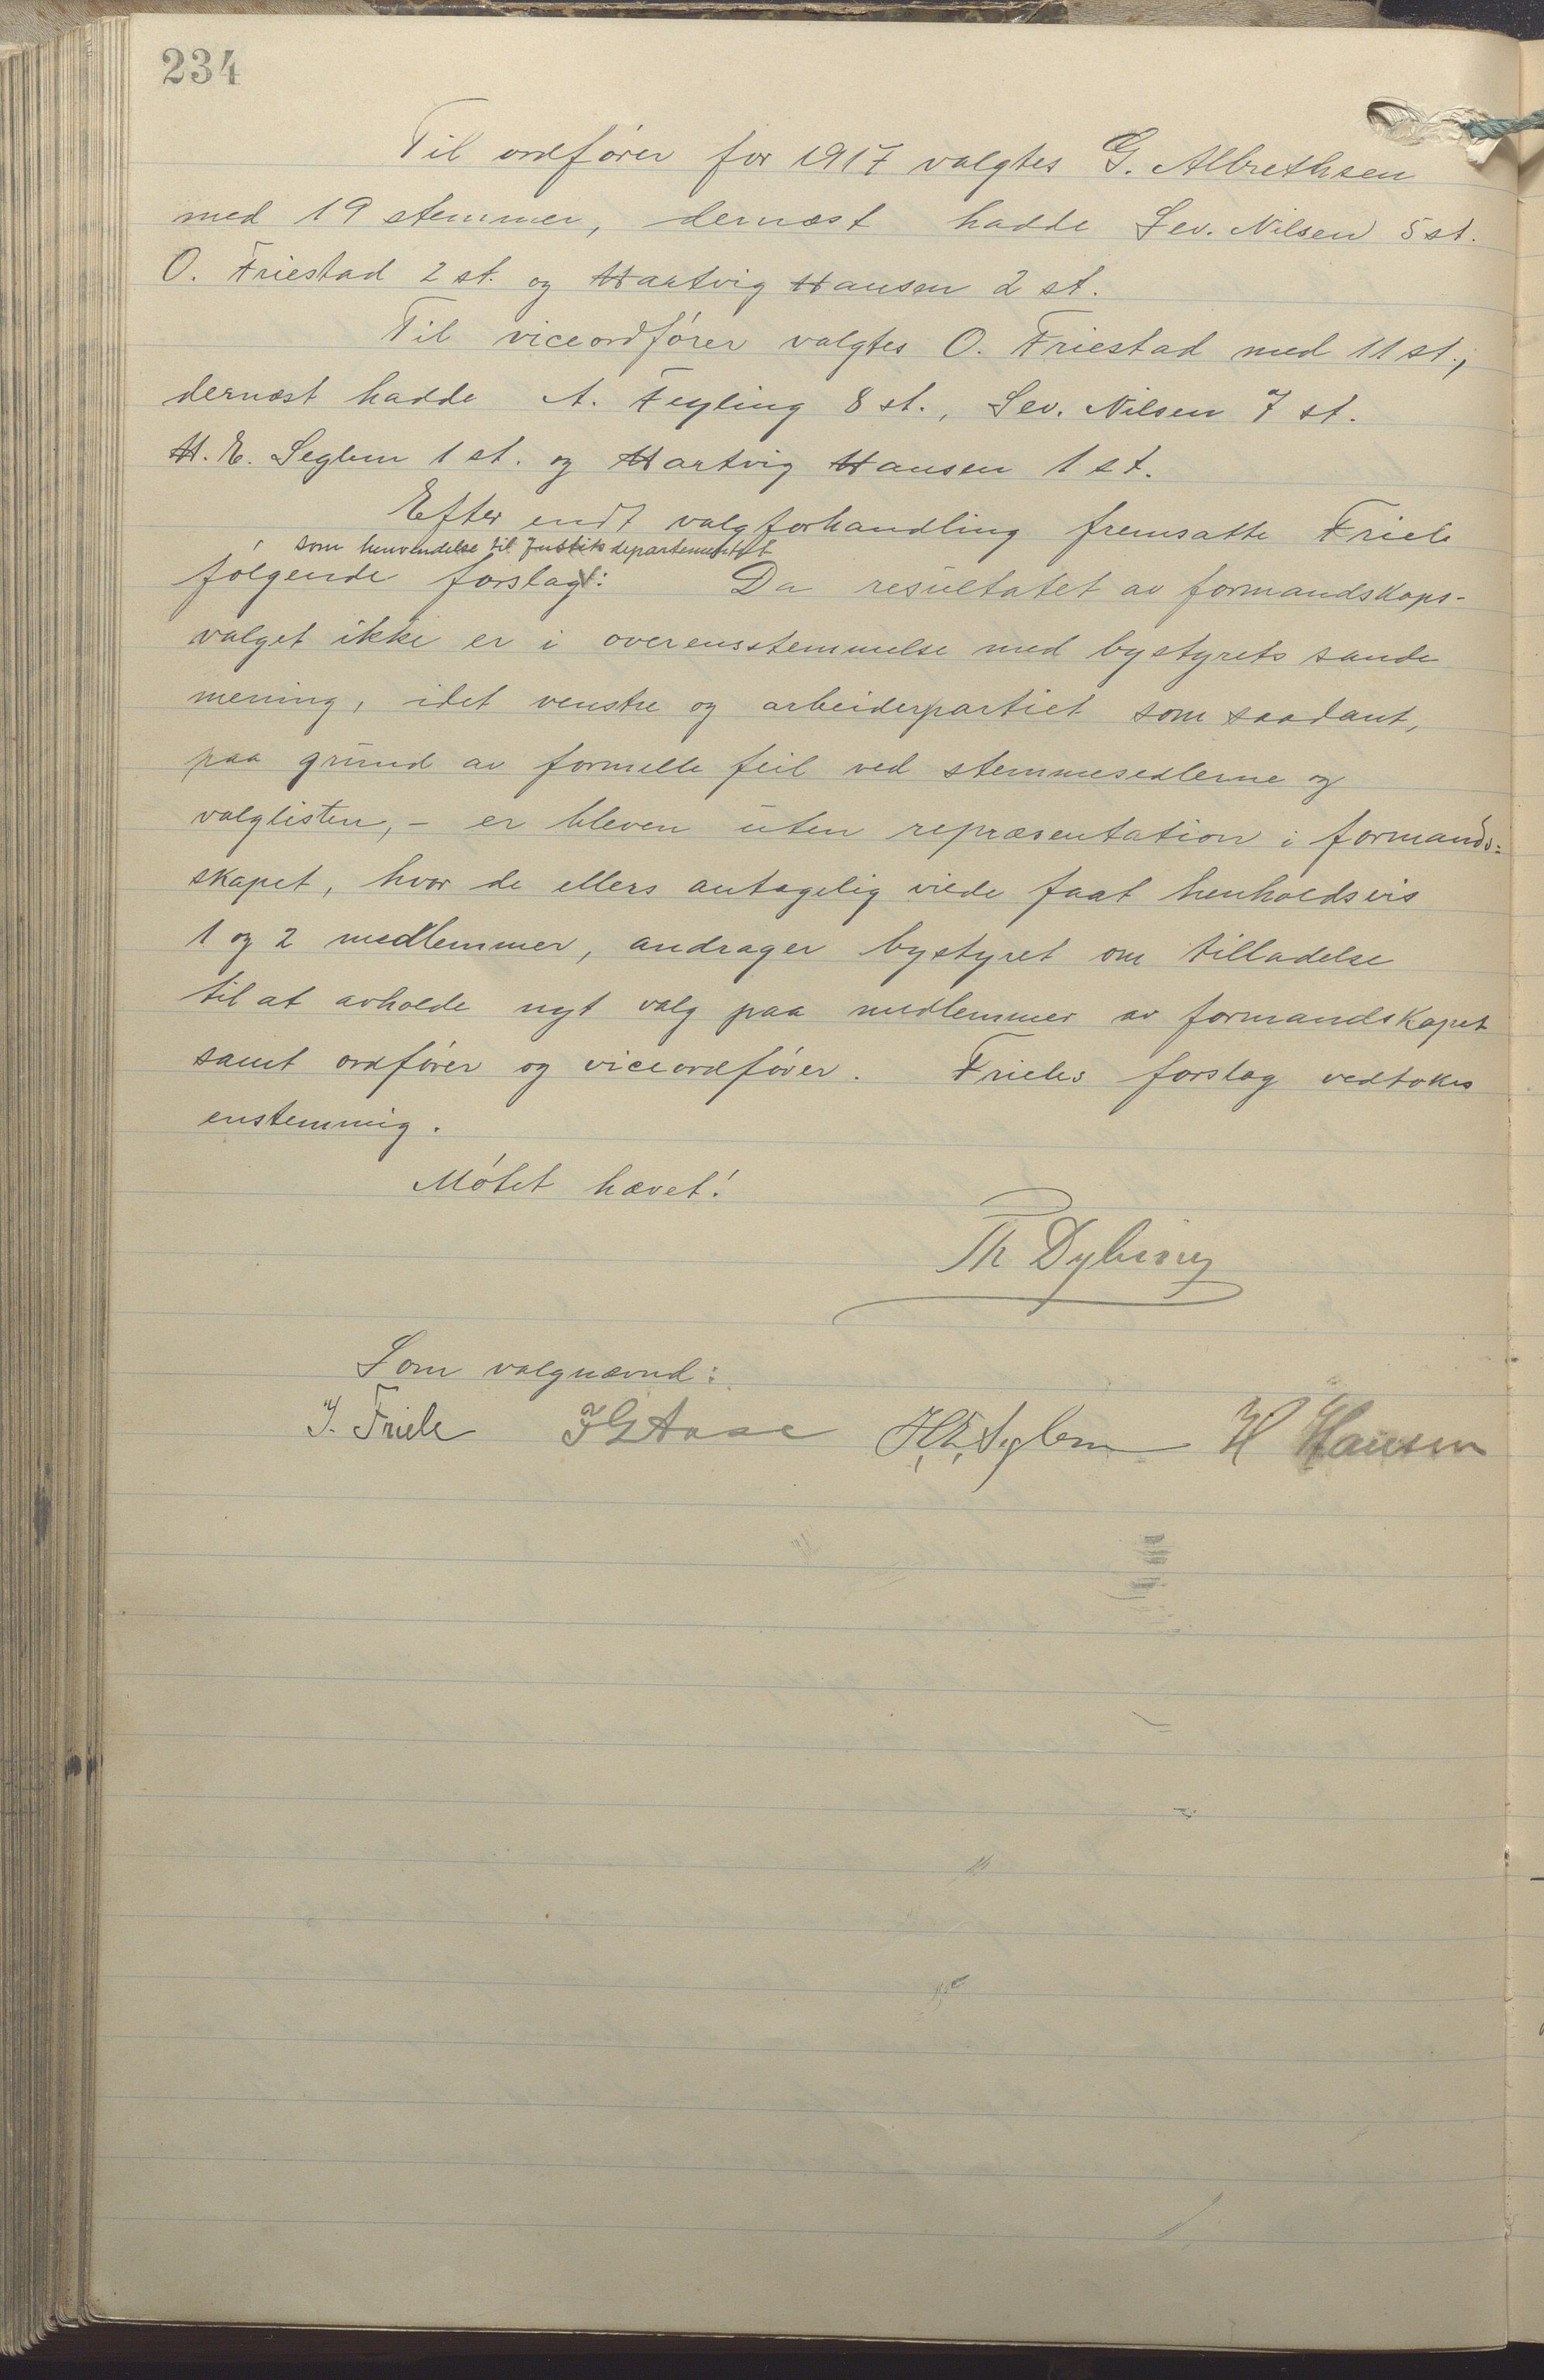 234
Til ordfører for 1917 valgtes G. Albrethsen
med 19 stemmer, dernæst hadde Sev. Nilsen 5 st.
O. Friestad 2 st. og Hartvig Hansen 2 st.
Til viceordfører valgtes O. Friestad med 11 st.,
dernæst hadde A. Feyling 8 st., Sev. Nilsen 7 st.
H. E. Seglem 1 st. og Hartvig Hansen 1 st.
Efter endt valgforhandling fremsatte Friele
som henvendelse til Justitsdepartementet
følgende forslag: Da resultatet av formandskaps-
valget ikke er i overensstemmelse med bystyrets sande
mening, idet venstre og arbeiderpartiet som saadant,
paa grund av formelle feil ved stemmesedlerne og
valglisten, – er bleven uten repræsentation i formands=
skapet, hvor de ellers antagelig vilde faat henholdsvis
1 og 2 medlemmer, andrager bystyret om tilladelse
til at avholde nyt valg paa medlemmer av formandskapet
samt ordfører og viceordfører. Frieles forslag vedtokes
enstemmig.
Møtet hævet!
Th Dybing
Som valgnævnd:
J. Friele J G Aase H. E. Seglem H Hansen